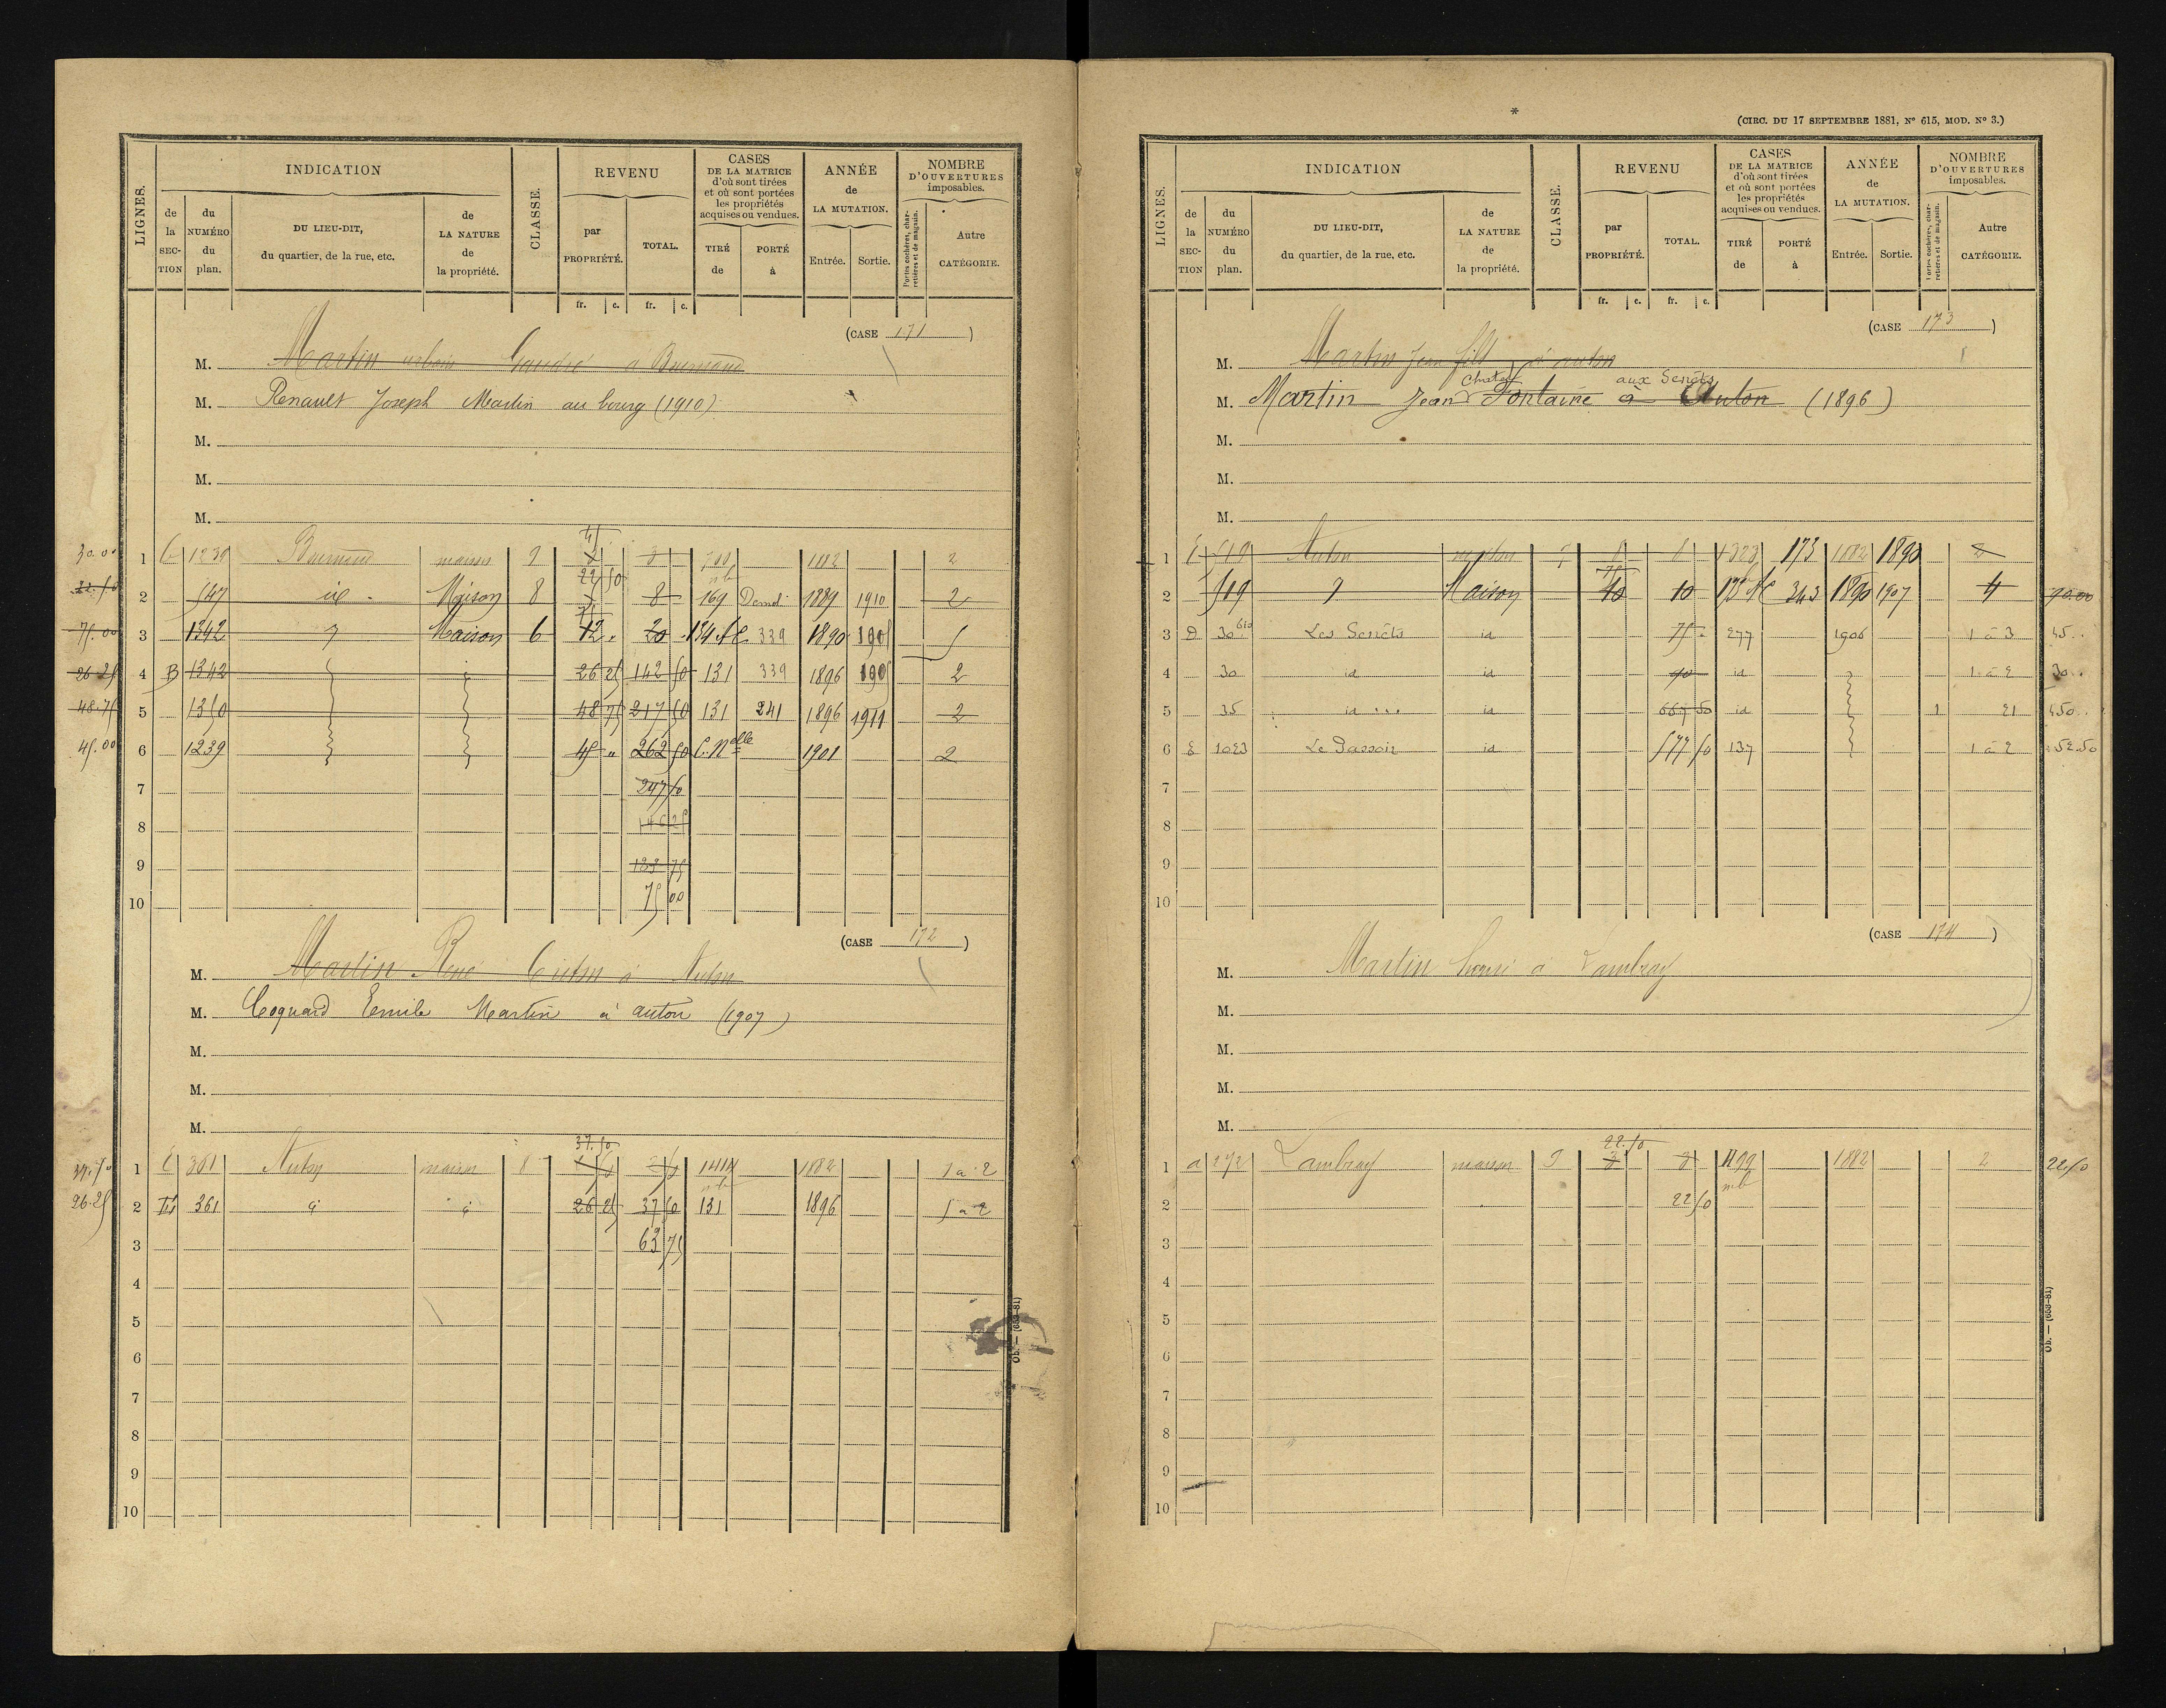 LIGNES.
INDICATION
de la SEC-TION
du NUMÉRO du plan.
DU LIEU-DIT, du quartier, de la rue, etc.
de LA NATURE de la propriété.
CLASSE.
REVENU
par PROPRIÉTÉ.
TOTAL.
CASES DE LA MATRICE d'où sont tirées et où sont portées les propriétés acquises ou vendues.
TIRÉ de
PORTÉ à
ANNÉE de LA MUTATION.
Entrée.
Sortie.
NOMBRE D'OUVERTURES imposables.
Portes cochères, charretières et de magasin.
Autre CATÉGORIE.
fr. c. fr. c.
(CASE 171)
M. Martin
M. Renault Joseph Martin au bourg (1910)
M.
M.
M.
30.00 1 1239 maison 9 8 1882 2
22.50 2 547 id Maison 8 22 50 8 169 Demol. 1889 1910 2
75.00 3 1342 Maison 6 75 12 20 134 339 1890 1905 5
26.25 4 B 1342 26 25 142 50 131 339 1896 1905 2
48.75 5 1350 48 75 217 50 131 241 1896 1911 2
45.00 6 1239 45 " 262 50 C. Nelle 1901 2
7 247 50
8 146 25
9 123 75
10 75 00
(CASE 172)
M. Martin René
M. Coquard Emile Martin à auton (1907)
M.
M.
M.
37.50
37.50 1 361 maison 8 1882 1 à 2
26.25 2 361 26 25 37 50 131 1896 1 à 2
3 63 75
4
5
6
7
8
9
10
Ob. — (653-81)
*
(CIRC. DU 17 SEPTEMBRE 1881, Nº 615, MOD. Nº 3.)
LIGNES.
INDICATION
de la SEC-TION
du NUMÉRO du plan.
DU LIEU-DIT, du quartier, de la rue, etc.
de LA NATURE de la propriété.
CLASSE.
REVENU
par PROPRIÉTÉ.
TOTAL.
CASES DE LA MATRICE d'où sont tirées et où sont portées les propriétés acquises ou vendues.
TIRÉ de
PORTÉ à
ANNÉE de LA MUTATION.
Entrée.
Sortie.
NOMBRE D'OUVERTURES imposables.
Portes cochères, charretières et de magasin.
Autre CATÉGORIE.
fr. c. fr. c.
(CASE 173)
M. Martin Jean fils à auton
aux Senêts
M. Martin Jean Fontaine à Auton (1896)
M.
M.
M.
1 519 Auton maison 8 8 173 1882 1890 2
2 519 Maison 75 10 10 343 1890 1907 4 90.00
3 D 30 Les Senêts id 75 277 1906 1 à 3 45..
4 30 id id 90 id 1 à 2 30..
5 35 id id 667 50 id 1 21 450..
6 E 1023 Le Passoir id 577 50 137 1 à 2 52.50
7
8
9
10
(CASE 174)
M. Martin à Lambray
M.
M.
M.
M.
22.50
1 a 272 Lambray maison 9 8 8 1882 2 22.50
2 22 50
3
4
5
6
7
8
9
10
Ob. — (653-81)